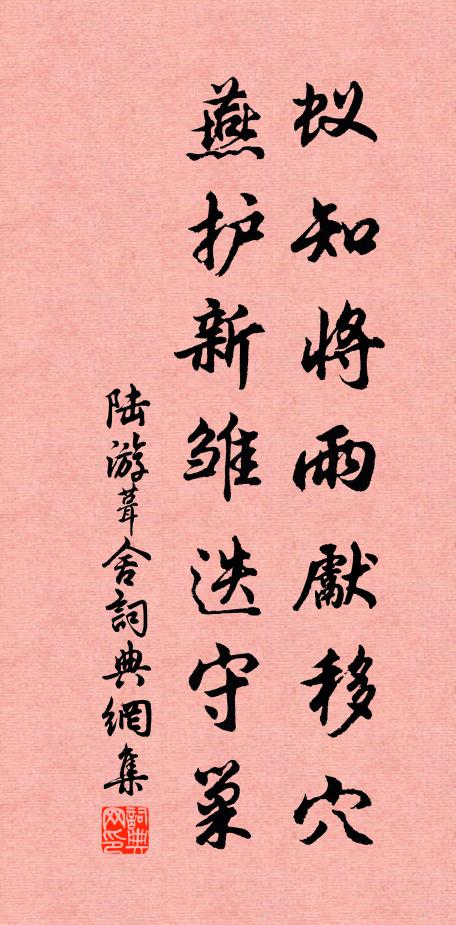 蚁知将雨獻移穴
燕护新雏迭守巢
陆游葺舍詞典網集
詞典网印